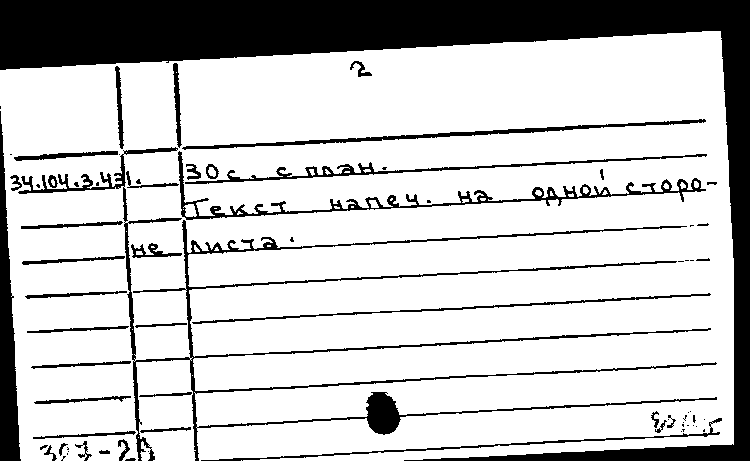 2
34.104.3.431. 30 с. с план.
Текст напеч. на одной сторо-
не листа.